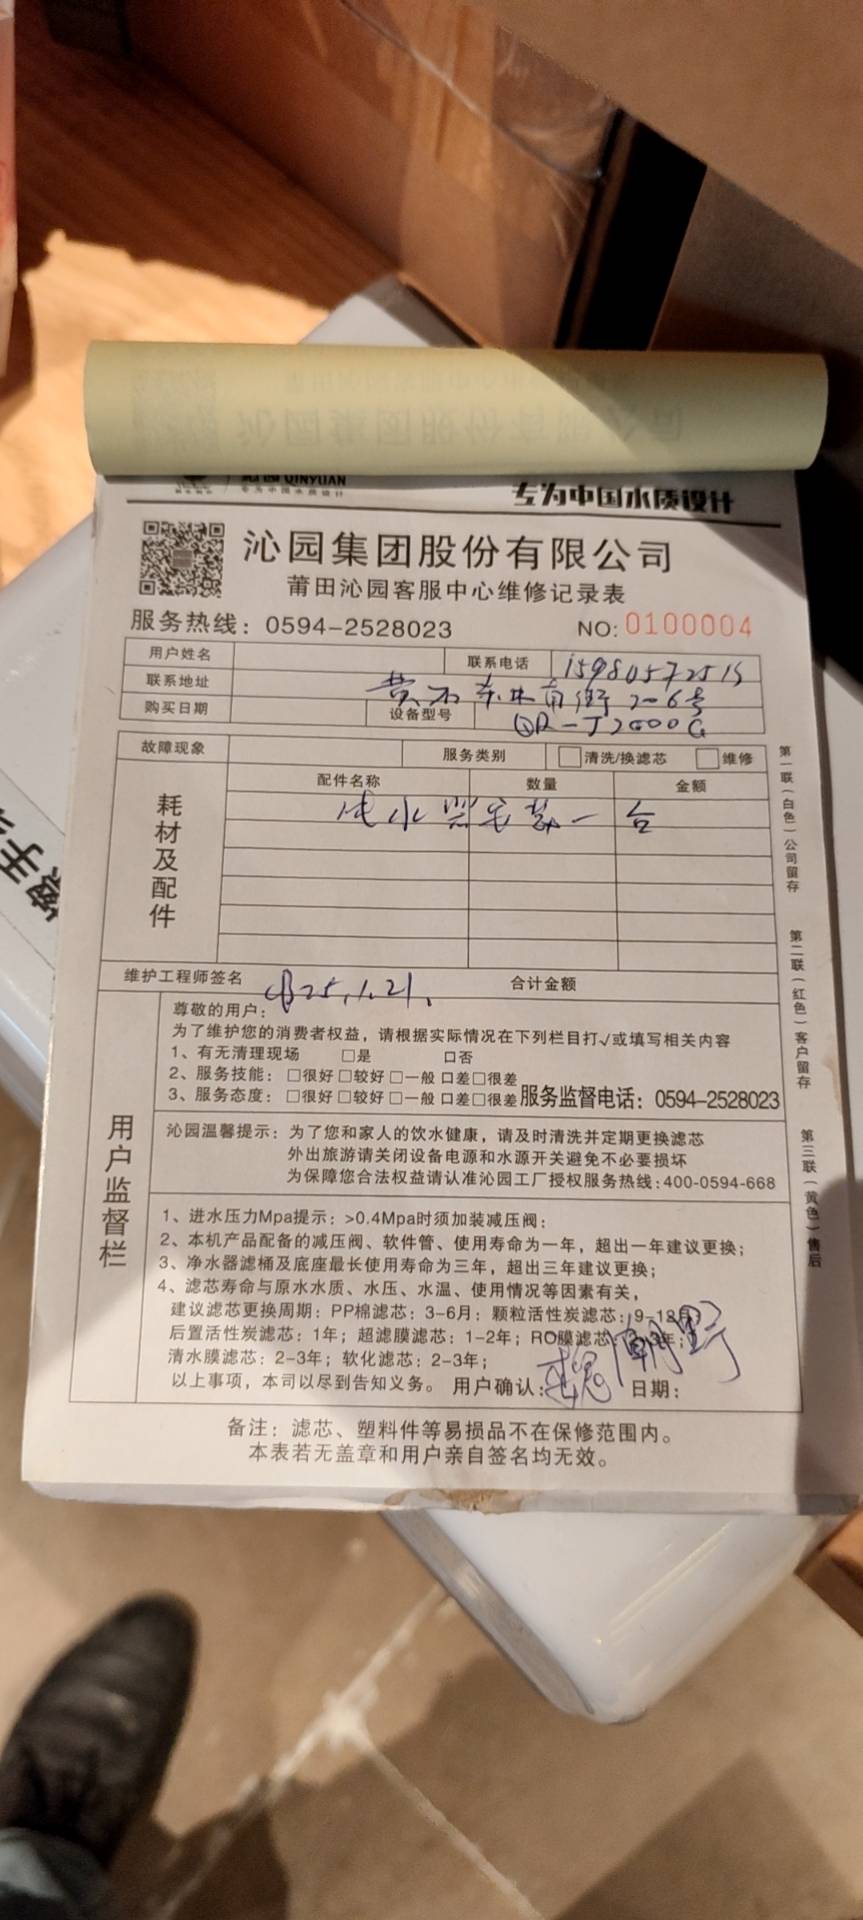 沁园 QINYUAN
专为中国水质设计
专为中国水质设计
沁园集团股份有限公司
莆田沁园客服中心维修记录表
服务热线：0594-2528023 NO: 0100004
用户姓名 联系电话
联系地址 黄石东林南街206号
购买日期 设备型号 QR-J2500G
故障现象 服务类别 □清洗/换滤芯 □维修
耗材及配件
配件名称 数量 金额
净水器安装一台
维护工程师签名 25.1.21. 合计金额
用户监督栏
尊敬的用户：
为了维护您的消费者权益，请根据实际情况在下列栏目打√或填写相关内容
1、有无清理现场 □是 口否
2、服务技能：□很好□较好□一般口差□很差
3、服务态度：□很好□较好□一般口差□很差服务监督电话：0594-2528023
沁园温馨提示：为了您和家人的饮水健康，请及时清洗并定期更换滤芯
外出旅游请关闭设备电源和水源开关避免不必要损坏
为保障您合法权益请认准沁园工厂授权服务热线:400-0594-668
1、进水压力Mpa提示：>0.4Mpa时须加装减压阀；
2、本机产品配备的减压阀、软件管、使用寿命为一年，超出一年建议更换；
3、净水器滤桶及底座最长使用寿命为三年，超出三年建议更换；
4、滤芯寿命与原水水质、水压、水温、使用情况等因素有关，
建议滤芯更换周期：PP棉滤芯：3-6月；颗粒活性炭滤芯：9-12月
后置活性炭滤芯：1年；超滤膜滤芯：1-2年；RO膜滤芯：年；
清水膜滤芯：2-3年；软化滤芯：2-3年；
以上事项，本司以尽到告知义务。用户确认： 日期：
备注：滤芯、塑料件等易损品不在保修范围内。
本表若无盖章和用户亲自签名均无效。
第一联（白色）公司留存
第二联（红色）客户留存
第三联（黄色）售后